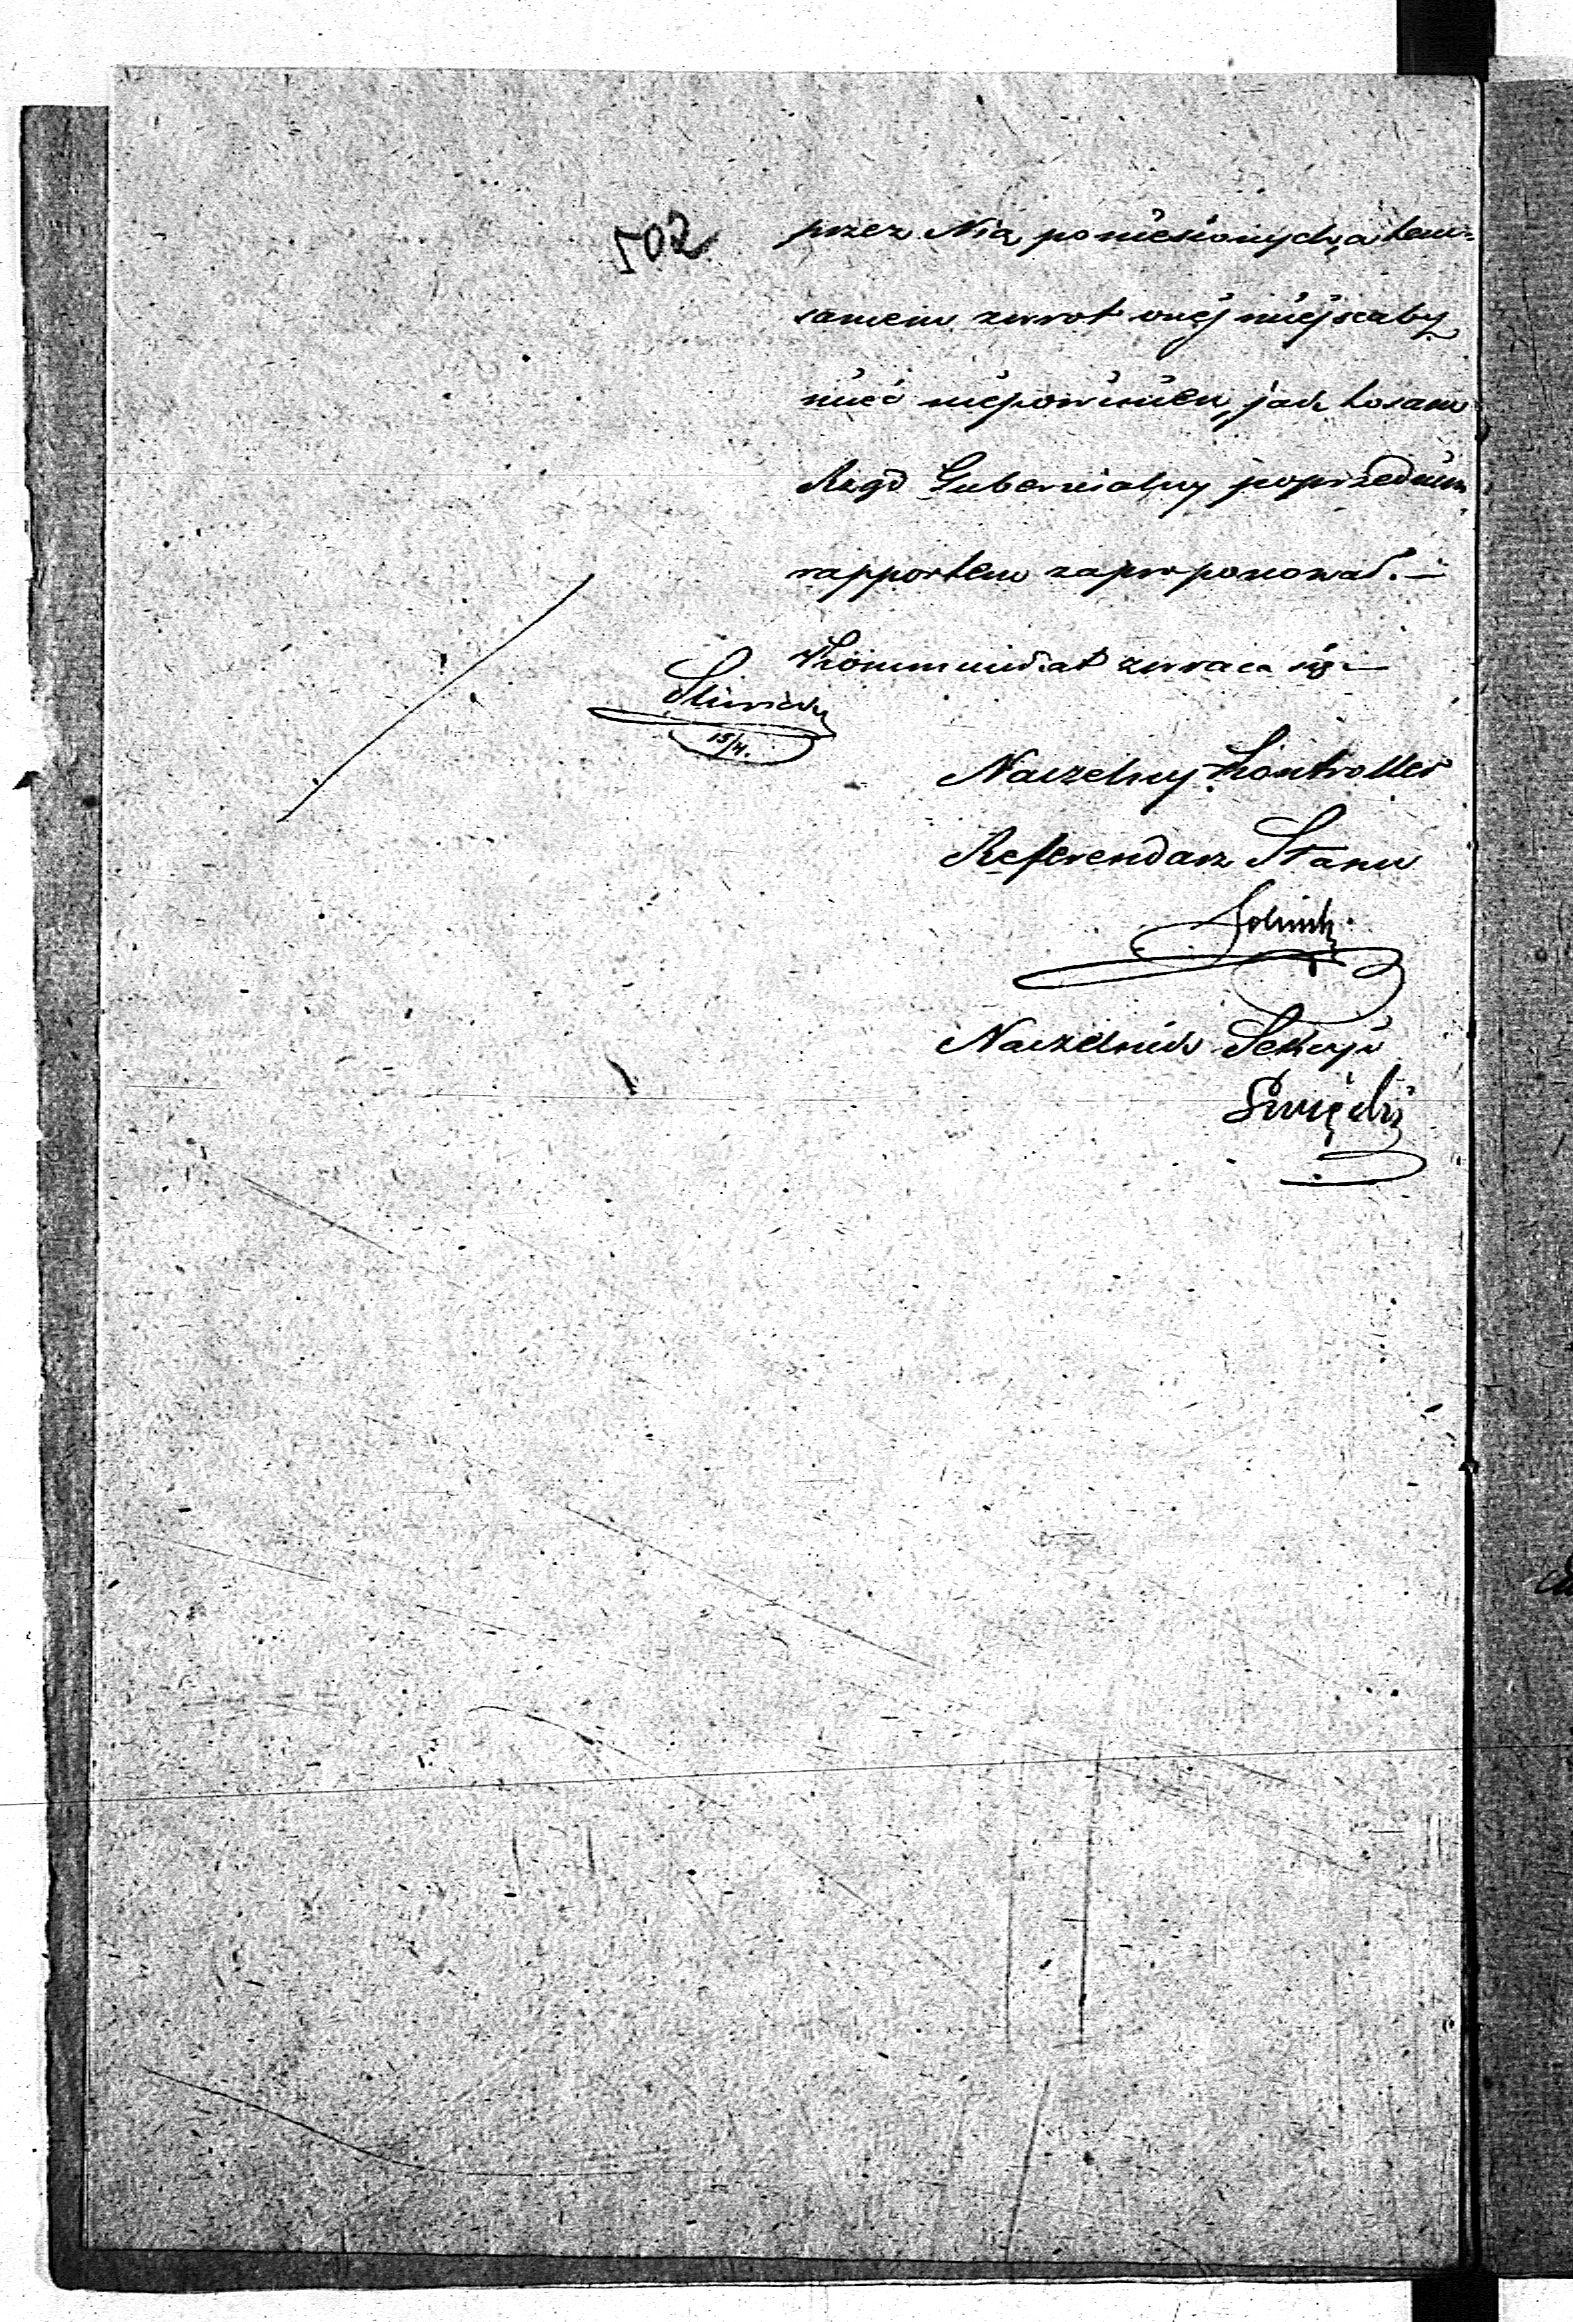 502
przez Nią poniesionych, a tem=
samem zwrot onéj miejscaby
mieć niepowinien, jak tosam
Rząd Gubernialny poprzednim
rapportem zaproponował. —
Kommunikat zwraca się —
15/4.
Naczelny Kontroller
Referendarz Stanu
Naczelnik Sekcyi
Święcki